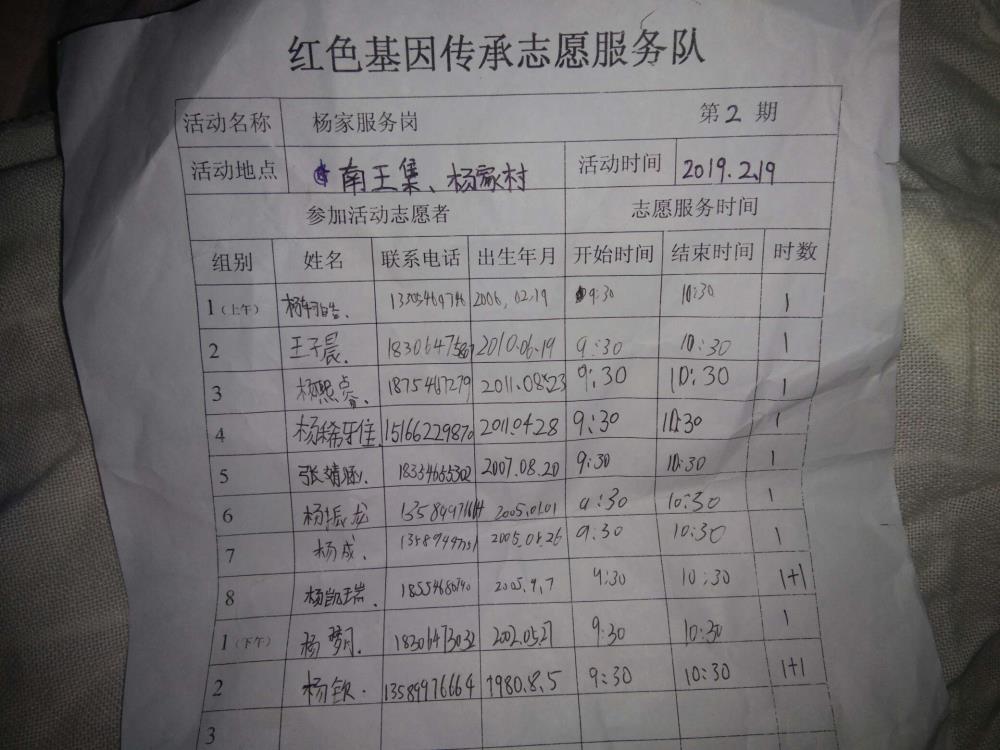 红色基因传承志愿服务队
活动名称 杨家服务岗 第2期
活动地点 南王集、杨家村 活动时间 2019.2.19
参加活动志愿者 志愿服务时间
组别 姓名 联系电话 出生年月 开始时间 结束时间 时数
1(上午) 2006.02.19 9:30 10:30 1
2 王子晨. 2010.06.19 9:30 10:30 1
3 杨熙睿. 1875467279 2011.08.23 9:30 10:30 1
4 杨稀牙佳. 15166229870 2011.04.28 9:30 10:30 1
5 18554655302 2007.08.20 9:30 10:30 1
6 杨振龙 2005.01.01 9:30 10:30 1
7 杨成. 9:30 10:30 1
8 杨凯瑞. 2005.9.7 9:30 10:30 1+1
1(下午) 杨梦月. 18306473032 2002.05.27 9:30 10:30 1
2 杨钦. 13589976664 1980.8.5 9:30 10:30 1+1
3